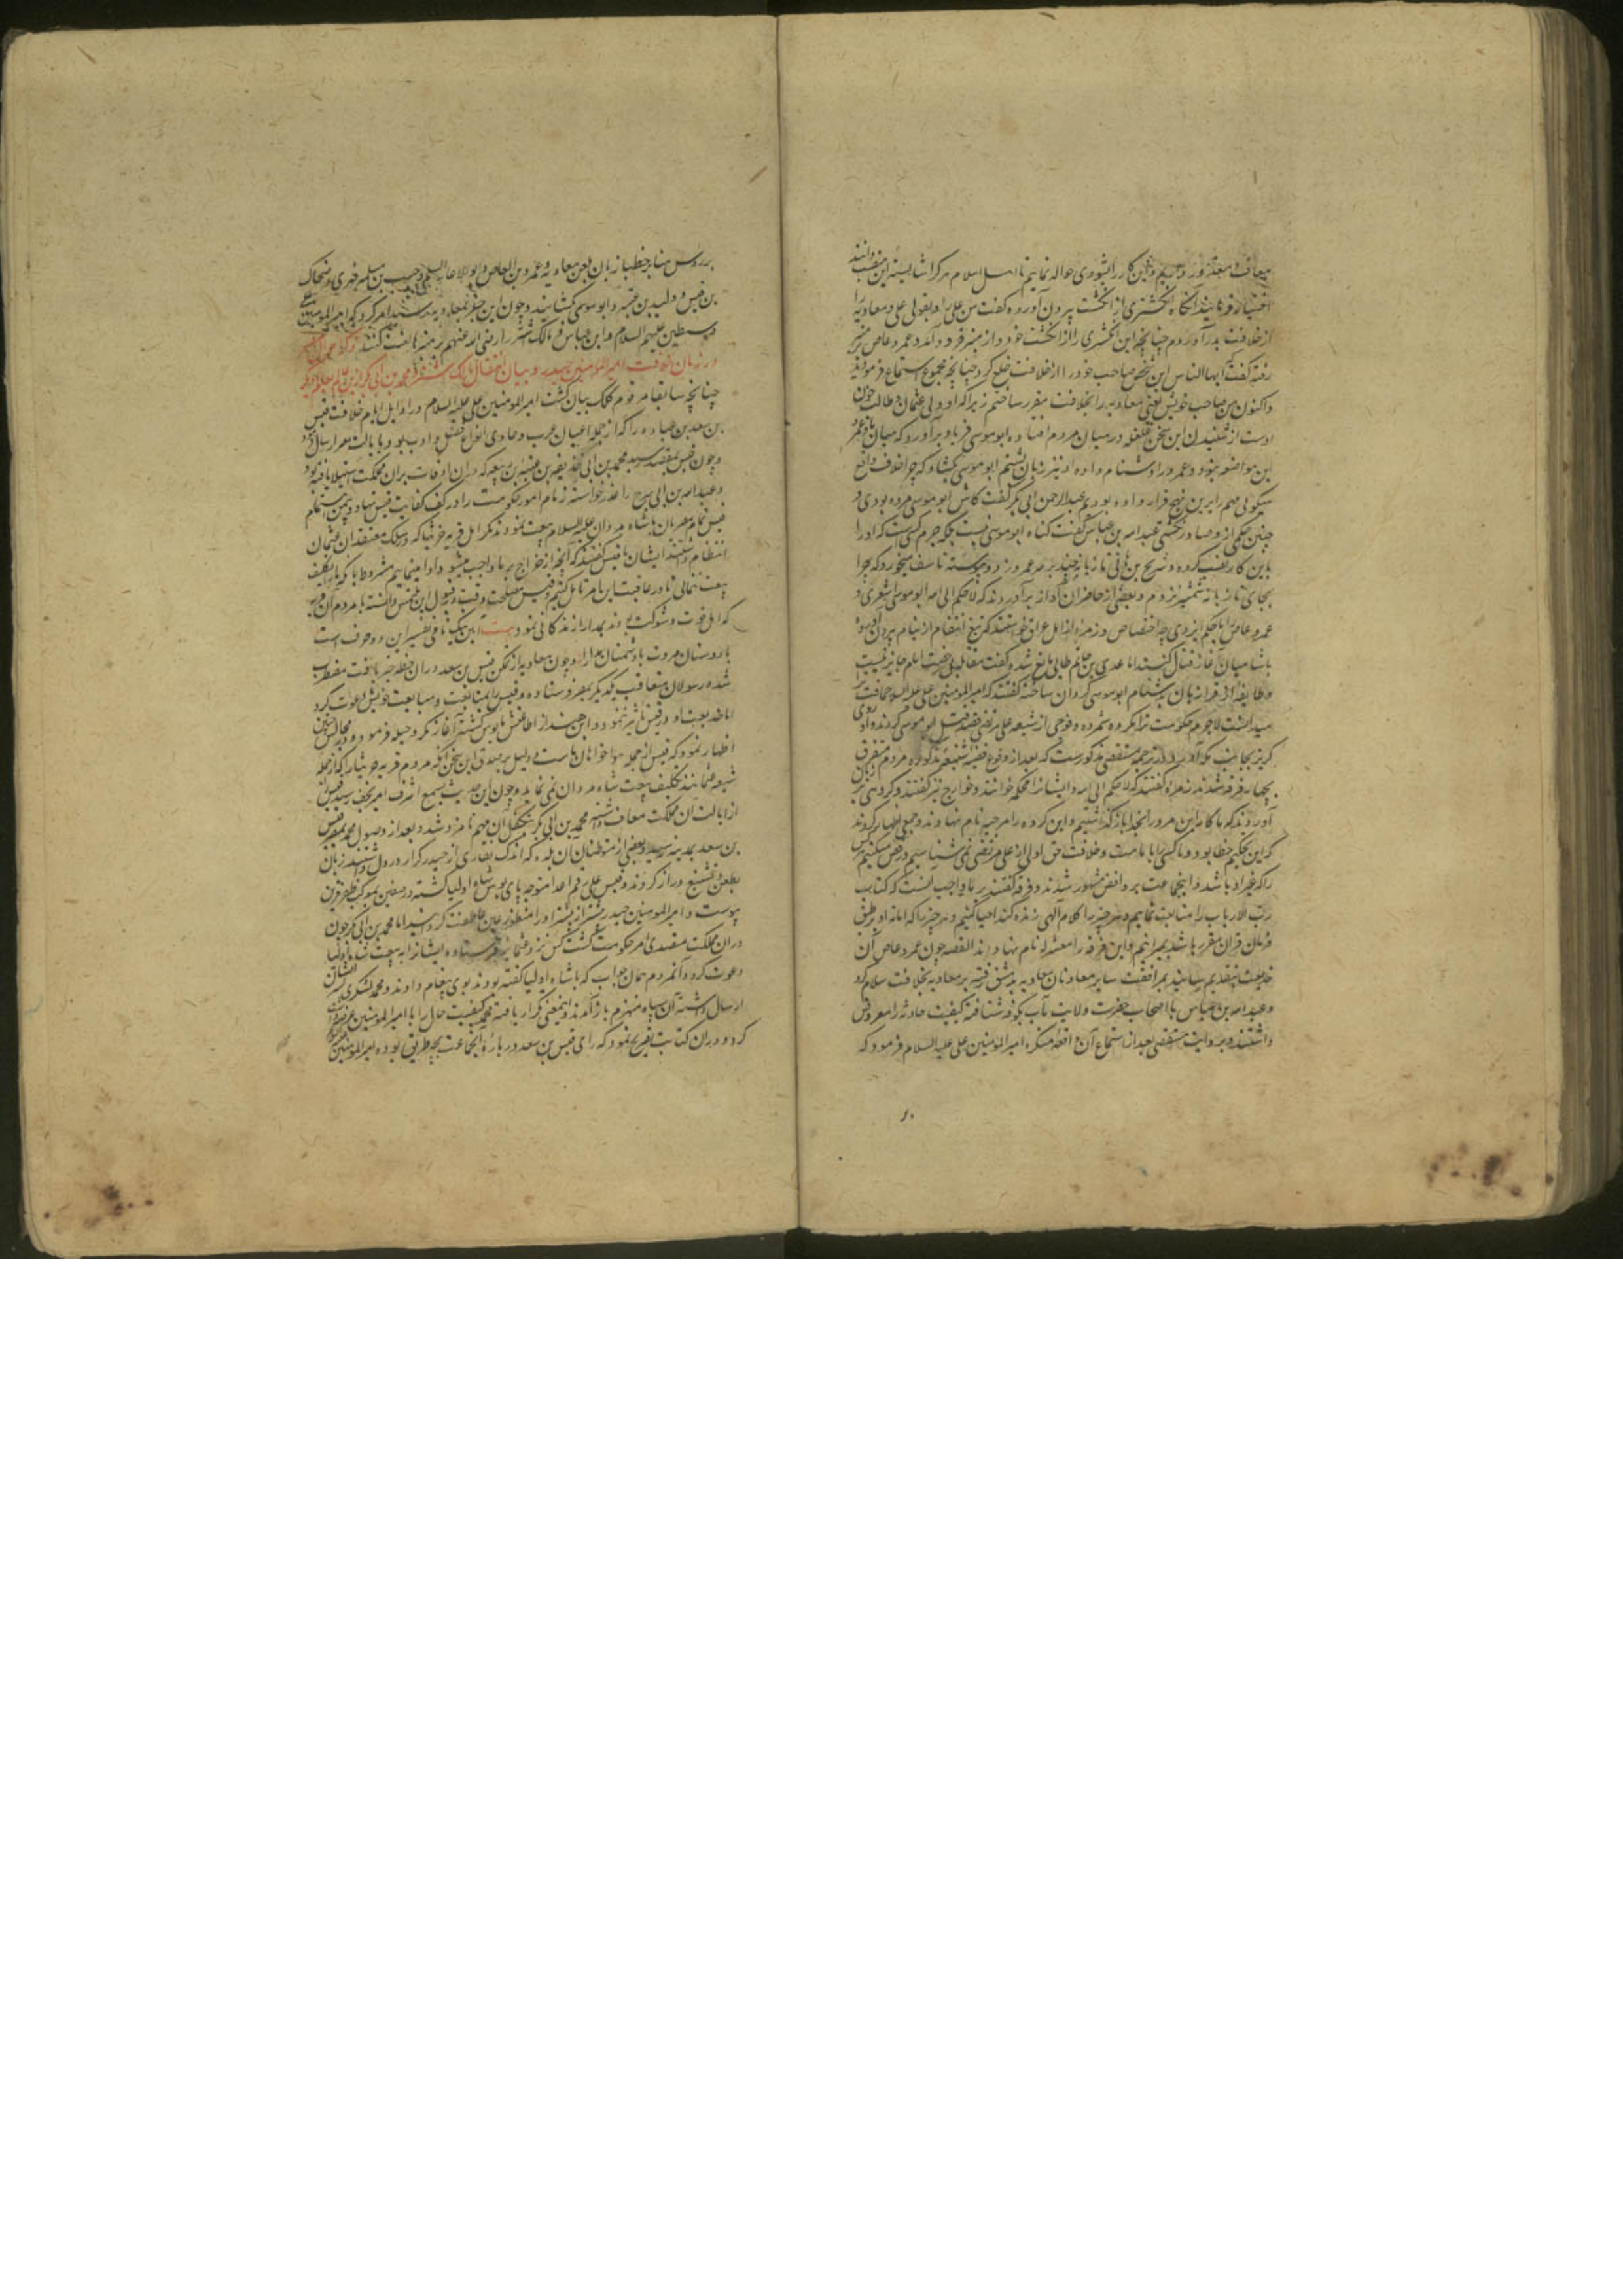 معاف و معذور داریم و این کار را بشوری حواله نماییم تا اهل اسلام هر کرا شایسته این منصب دانند
اختیار فرمایند آنگاه انگشتری از انگشت بیرون آورده گفت من علی را و بقولی علی و معاویه را
از خلافت بدر آوردم چنانچه این انگشتری را از انگشت خود و از منبر فرود آمد و عمرو عاص بر منبر
رفته گفت ایها الناس این شخص صاحب خود را از خلافت خلع کرد چنانچه مجموع استماع فرمودید
و اکنون من صاحب خویش یعنی معاویه را بخلافت مقرر ساختم زیرا که او ولی عثمان و طالب خون
اوست از شنیدن این سخن غلغله در میان مردم افتاده ابو موسی فریاد برآورد که میان ما و عمرو
این مواضعه نبود و عمرو را دشنام داده او نیز زبان بشتم ابو موسی بگشاد که چرا خلاف واقع
میگوئی مهم را برین نهج قرار داده بودیم عبد الرحمن ابی بکر گفت کاش ابو موسی مرده بودی و
چنین حکمی ازو صادر نگشتی عبد الله بن عباس گفت گناه ابو موسی نیست بلکه جرم کسی است که او را
باین کار نصب کرده و شریح بن هانی تازیانه چند بر سر عمرو زد و پیوسته تاسف میخورد که چرا
بجای تازیانه شمشیر نزدم و بعضی از حاضران آواز برآوردند که لا حکم الا لله ابو موسی اشعری و
عمرو عاص را با حکم ایزدی چه اختصاص و زمره از اهل عراق خواستند که تیغ انتقام از نیام بیرون آورده
با شامیان آغاز قتال کنند اما عدی بن حاتم طائی مانع شده گفت مقاتله بی رخصت امام جایز نیست
و طایفه زبان بدشنام ابو موسی گردان ساخته گفتند که امیر المومنین علی علیه السلام حماقت
میدانست لاجرم حکومت ترا مکروه شمرده و فوجی از شیعه علی مرتضی قصد قتل ابو موسی کردند و او روی
گریز بجانب مکه آورد در ترجمه مستقصی مذکورست که بعد از وقوع قضیه شنیعه مذکوره مردم متفرق
بچهار فرقه شدند زمره گفتند که لا حکم الا لله و ایشانرا محکمه خوانند و خوارج نیز گفتند و گروهی بر زبان
آوردند که ما کار این مرد را بخدا باز گذاشتیم و این گروه را مرجیه نام نهادند و جمعی اظهار کردند
که این تحکیم خطا بود و ما کسی را بامامت و خلافت حق اولی از علی مرتضی نمی شناسیم و رفض میکنیم هر کس
را که غیر او باشد و این جماعت بروافض مشهور شدند و فرقه گفتند بر ما واجب نیست که کتاب
رب الارباب را متابعت نماییم و هر چیز را کلام الهی زنده کند احیا کنیم و هر چیز را که اماته او بر طبق
فرمان قران مقرر باشد بمیرانیم و این فرقه را معتزله نام نهادند القصه چون عمرو عاص آن
خدیعت بتقدیم رسانید بمرافقت سایر معاونان معاویه بدمشق رفته بر معاویه بخلافت سلام کرد
و عبد الله بن عباس با اصحاب حضرت ولایت مآب بکوفه شتافته کیفیت حادثه را معروض
داشتند و بروایت مستقصی بعد از استماع آن واقعه منکره امیر المومنین علی علیه السلام فرمود که
بر روس منابر خطبا زبان بلعن معاویه و عمرو بن العاص و ابو الاعور السلمی و حبیب بن مسلمه فهری و ضحاک
بن قیس و ولید بن عقبه و ابو موسی بگشایند و چون این خبر بمعاویه رسید امر کرد که امیر المومنین علی
و سبطین علیهم السلام و ابن عباس و مالک اشتر را رضی الله عنهم بر منبرها لعنت کنند
در زمان خلافت امیر المومنین حیدر و بیان انتقال مالک اشتر و محمد بن ابی بکر ازین عالم بعالم دیگر
چنانچه سابقا مرقوم کلک بیان گشت امیر المومنین علی علیه السلام در اوایل ایام خلافت قیس
بن سعد بن عباده را که از جمله اعیان عرب و حاوی انواع فضل و ادب بود بایالت مصر ارسال نمود
و چون قیس بمقصد رسید محمد بن ابی حذیفه بن عتبه بن ربیعه که دران اوقات بران مملکت استیلا یافته بود
و عبد الله بن ابی سرح را عذر خواسته زمام امور حکومت را در کف کفایت قیس نهاد و بیمن اهتمام
قیس تمام مصریان با شاه مردان علیه السلام بیعت نمودند مگر اهل قریه خرنبا که در سلک معتقدان عثمان
انتظام داشتند ایشان با قیس گفتند که آنچه از خراج بر ما واجب میشود ادا مینماییم مشروط بانکه ما را تکلیف
بیعت ننمائی تا در عاقبت این امر تامل کنیم و قیس مصلحت وقت در قبول این ملتمس دانسته با مردم آن قریه
که اهل قوت و شوکت بودند بمدارا زندگانی نمود بیت آسایش دو گیتی تفسیر این دو حرف است
با دوستان مروت با دشمنان مدارا و چون معاویه از تمکن قیس بن سعد دران خطه خبر یافت مضطرب
شده رسولان متعاقب یکدیگر بمصر فرستاده و قیس را بمتابعت و مبایعت خویش دعوت کرد
اما خدیعت او در قیس تاثیر ننمود و ابن هند از اطاعتش مایوس گشته آغاز مکر و حیله فرمود و در مجالس چنین
اظهار نمود که قیس از جمله هواخواهان ماست و دلیل بر صدق این سخن آنکه مردم قریه خرنبا را که از جمله
شیعه عثمانند تکلیف بیعت شاه مردان نمی نماید و چون این حدیث بسمع اشرف امیر نجف رسید قیس را
از ایالت آن مملکت معاف داشته محمد بن ابی بکر بتکفل آن مهم نامزد شد و بعد از وصول محمد بمصر قیس
بن سعد بمدینه رسید و بعضی از متوطنان آن بلده که اندک غباری از حیدر کرار در دل داشتند زبان
بطعن و تشنیع دراز کردند و قیس علی رغم اعدا متوجه پای بوس شاه اولیا گشته در صفین بموکب ظفر قرین
پیوست و امیر المومنین حیدر بیشتر از پیشتر او را منظور عین عاطفت گردانید اما محمد بن ابی بکر چون
دران مملکت متصدی امر حکومت گشت کس نزد عثمانیه فرستاده ایشانرا به بیعت شاه اولیا
دعوت کرد و آنمردم همان جواب که با شاه اولیا گفته بودند بوی پیغام دادند و محمد لشکری بسر ایشان
ارسال داشته آن سپاه منهزم باز آمدند و اینمعنی تکرار یافته محمد کیفیت حال را با امیر المومنین
کرد و دران کتابت تصریح نمود که رای قیس بن سعد در باره این جماعت بچه طریق بوده امیر المومنین